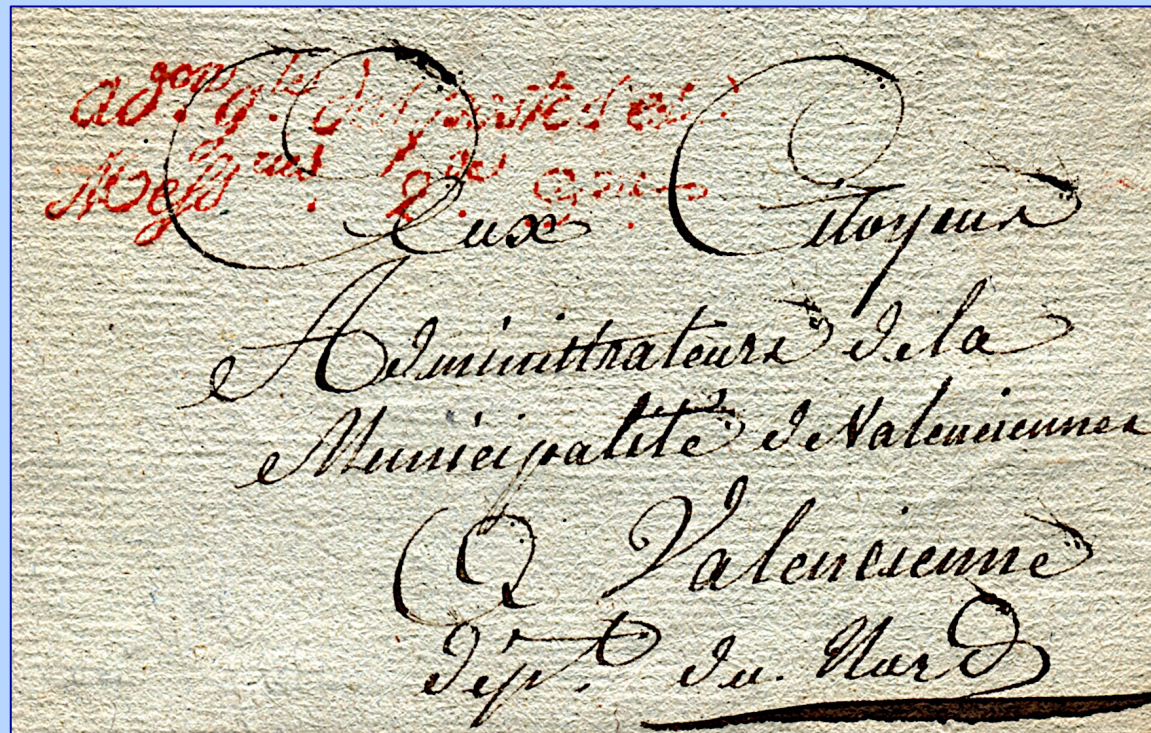 adon gle des postes et
Messries de
Aux Citoyens
Administrateurs de la
Municipalité de Valenciennes
A Valencienne
dépt. du Nord